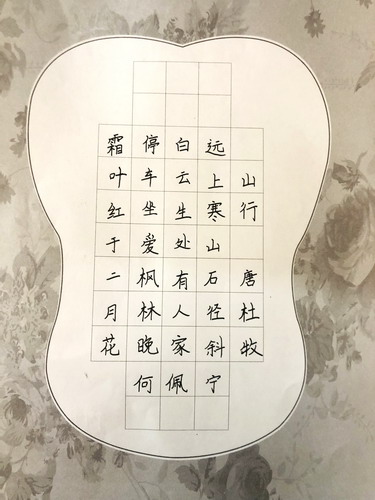 山行
唐杜牧
远上寒山石径斜
白云生处有人家
停车坐爱枫林晚
霜叶红于二月花
何佩宁